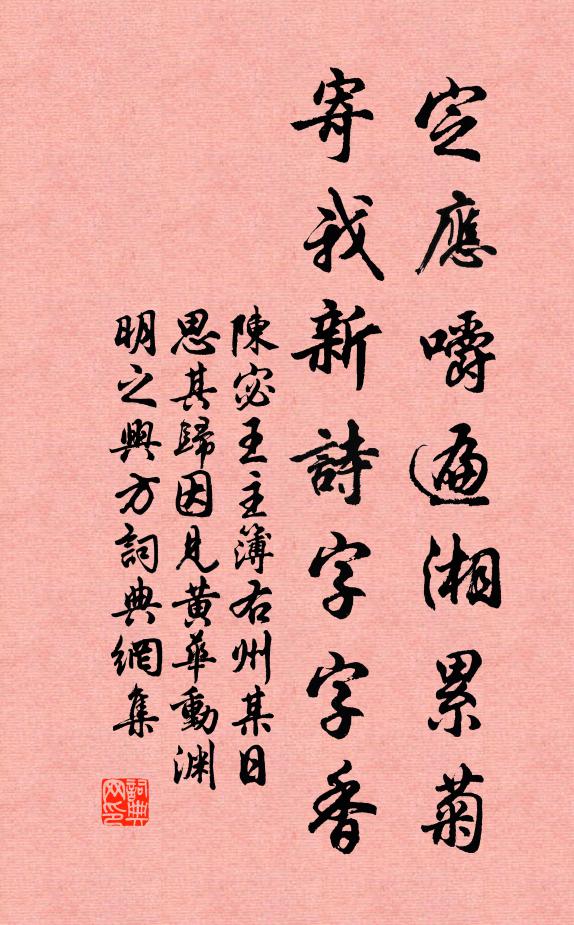 定應嚼遍湘累菊
寄我新詩字字香
陳宓王主簿右州某日
思其歸因見黃華動淵
明之興方詞典網集
詞典网印